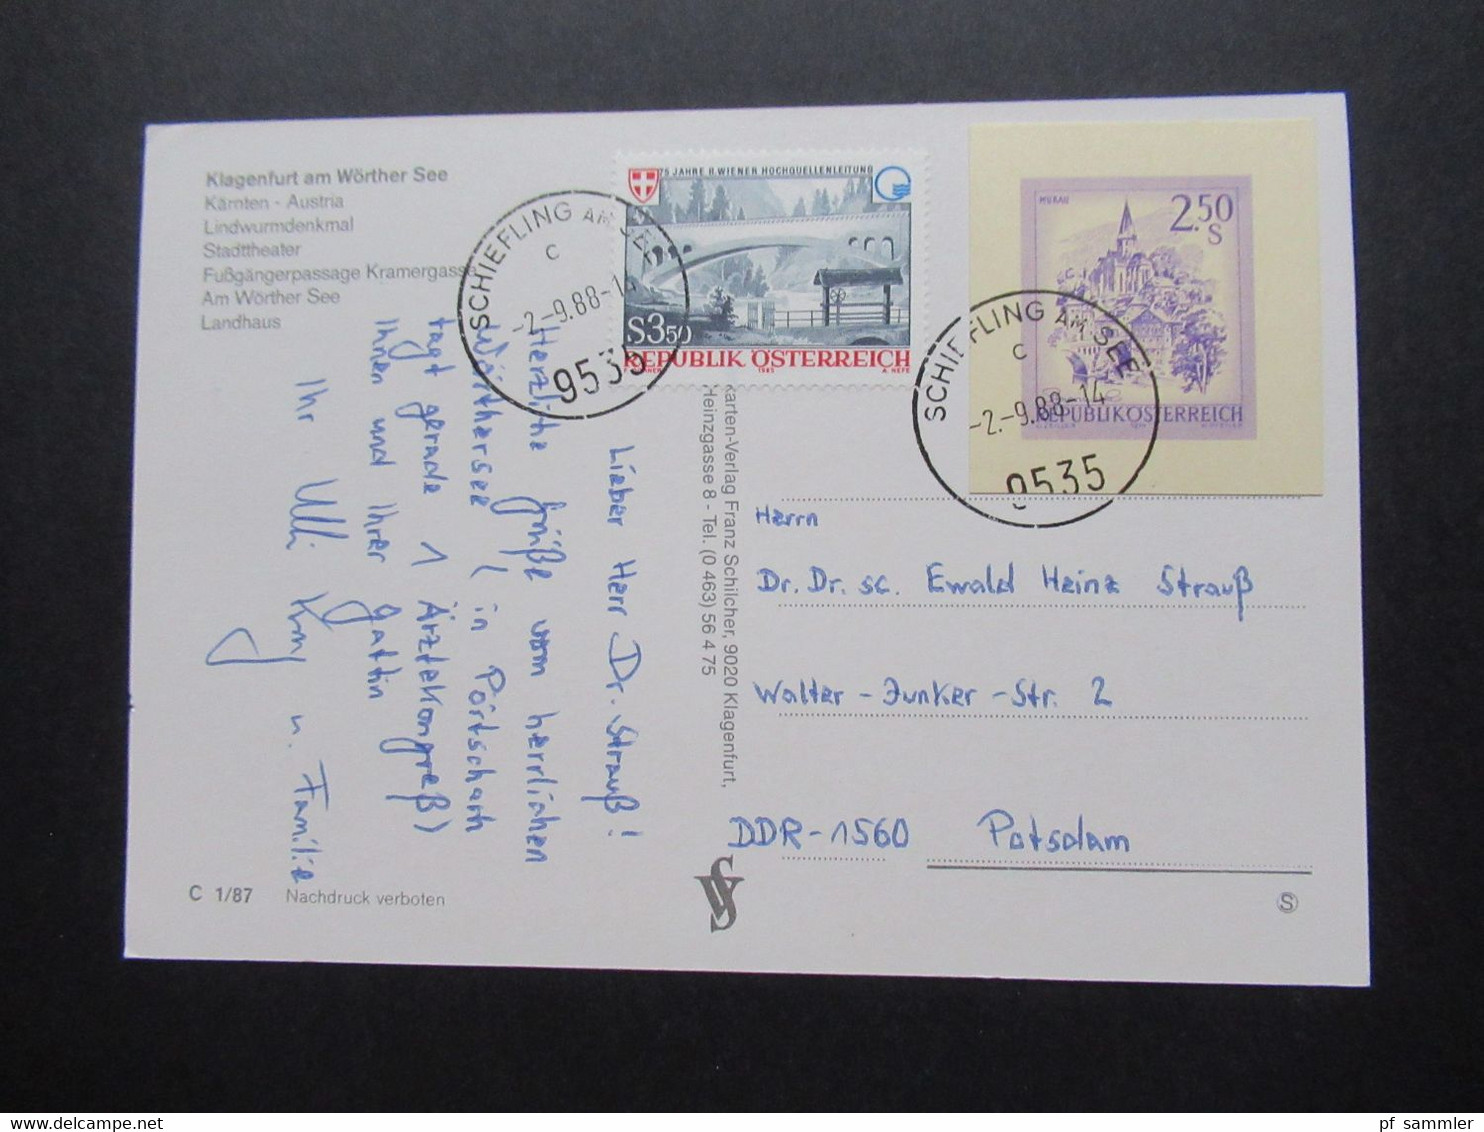 Klagenfurt am Wörther See
Kärnten - Austria
Lindwurmdenkmal
Stadttheater
Fußgängerpassage Kramergasse
Am Wörther See
Landhaus
75 JAHRE II. WIENER HOCHQUELLENLEITUNG
S3.50
REPUBLIK ÖSTERREICH
1985
SCHIEFLING AM SEE
c
-2.-9.88-14
9535
MURAU
2.50
S
REPUBLIK ÖSTERREICH
SCHIEFLING AM SEE
c
-2.-9.88-14
9535
Lieber Herr Dr. Strauß!
Herzliche Grüße vom herrlichen
Wörthersee (in Pörtschach
tagt gerade 1 Ärztekongreß)
Ihnen und Ihrer Gattin
Ihr
u. Familie
Karten-Verlag Franz Schilcher, 9020 Klagenfurt,
Heinzgasse 8 - Tel. (0 463) 56 4 75
Herrn
Dr. Dr. sc. Ewald Heinz Strauß
Walter-Junker-Str. 2
DDR-1560 Potsdam
C 1/87 Nachdruck verboten
S
pf sammler